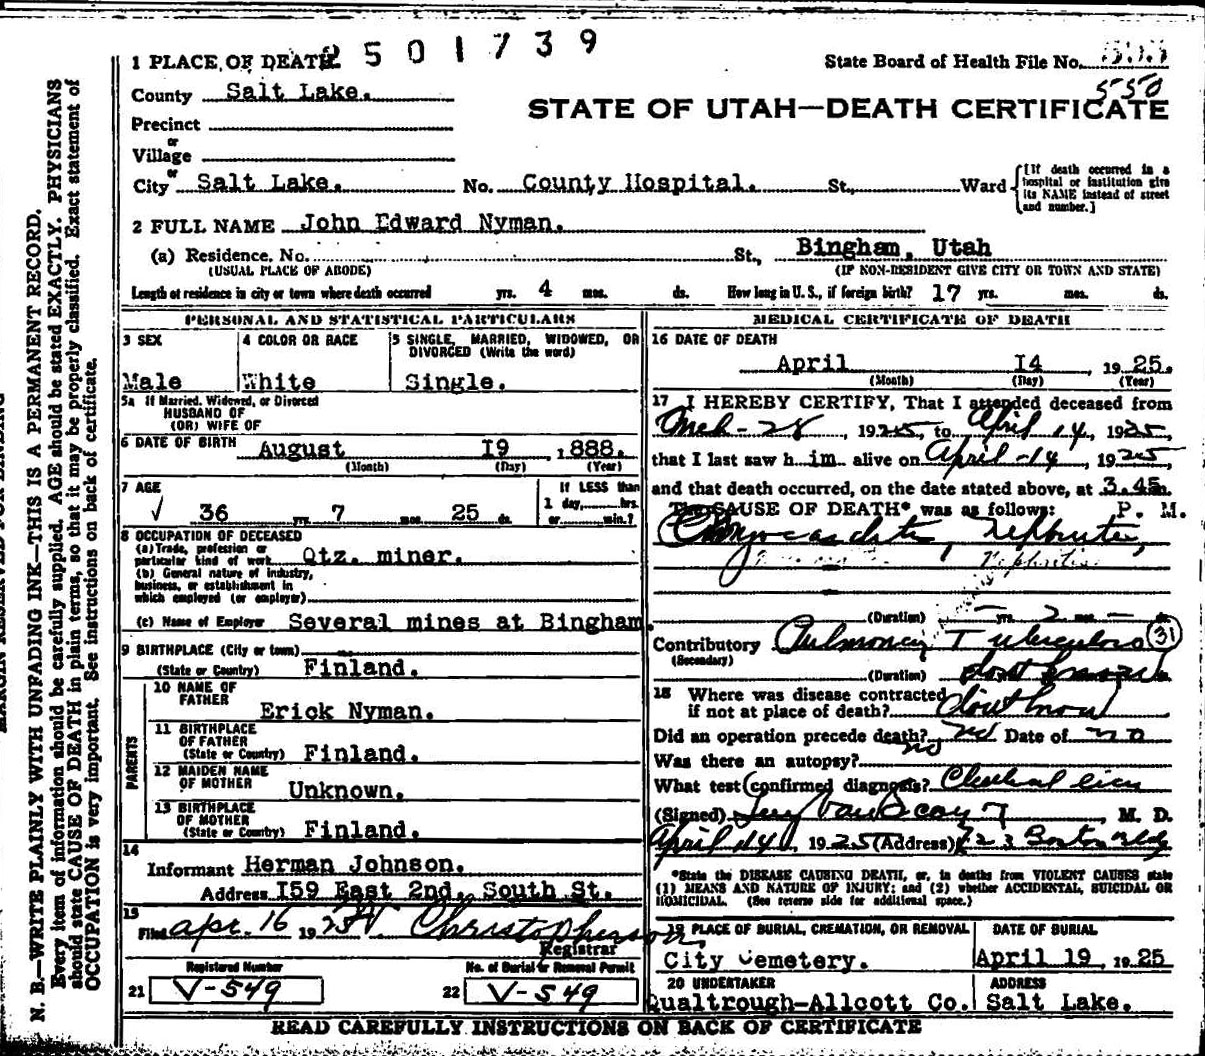 2501739
1 PLACE OF DEATH
State Board of Health File No.
County Salt Lake.
550
STATE OF UTAH—DEATH CERTIFICATE
Precinct
or
Village
or
City Salt Lake. No. County Hospital. St., Ward
[If death occurred in a hospital or institution give its NAME instead of street and number.]
2 FULL NAME John Edward Nyman.
(a) Residence. No. St., Bingham, Utah
(USUAL PLACE OF ABODE) (IF NON-RESIDENT GIVE CITY OR TOWN AND STATE)
Length of residence in city or town where death occurred yrs. 4 mos. ds. How long in U. S., if foreign birth? 17 yrs. mos. ds.
PERSONAL AND STATISTICAL PARTICULARS
3 SEX
Male
4 COLOR OR RACE
White
5 SINGLE, MARRIED, WIDOWED, OR
DIVORCED (Write the word)
Single.
5a If Married, Widowed, or Divorced
HUSBAND OF
(OR) WIFE OF
6 DATE OF BIRTH August I9, 1888.
(Month) (Day) (Year)
7 AGE
√ 36 yrs. 7 mos. 25 ds.
If LESS than
1 day, hrs.
or min.?
8 OCCUPATION OF DECEASED
(a) Trade, profession or
particular kind of work Qtz. miner.
(b) General nature of industry,
business, or establishment in
which employed (or employer)
(c) Name of Employer Several mines at Bingham.
9 BIRTHPLACE (City or town)
(State or Country) Finland.
PARENTS
10 NAME OF
FATHER
Erick Nyman.
11 BIRTHPLACE
OF FATHER
(State or Country) Finland.
12 MAIDEN NAME
OF MOTHER
Unknown.
13 BIRTHPLACE
OF MOTHER
(State or Country) Finland.
14
Informant Herman Johnson.
Address I59 East 2nd, South St.
15
Filed Apr. 16 1925 W. Christopherson
Registrar
Registered Number
21 V-549
No. of Burial or Removal Permit
22 V-549
MEDICAL CERTIFICATE OF DEATH
16 DATE OF DEATH
April I4, 1925.
(Month) (Day) (Year)
17 I HEREBY CERTIFY, That I attended deceased from
Mch-28, 1925, to April 14, 1925,
that I last saw him alive on April-14, 1925,
and that death occurred, on the date stated above, at 3.45m.
The CAUSE OF DEATH* was as follows: P. M.
Myocarditis, Nephritis,
Nephritis
(Duration) — yrs. 2 mos. — ds.
Contributory Pulmonary Tuberculosis 31
(Secondary)
(Duration) dont know
18 Where was disease contracted
if not at place of death? dont know
Did an operation precede death? no Date of no
Was there an autopsy? no
What test confirmed diagnosis?
(Signed) M. D.
April 14, 1925 (Address) 723 Boston Bldg
*State the DISEASE CAUSING DEATH, or, in deaths from VIOLENT CAUSES state
(1) MEANS AND NATURE OF INJURY; and (2) whether ACCIDENTAL, SUICIDAL OR
HOMICIDAL. (See reverse side for additional space.)
19 PLACE OF BURIAL, CREMATION, OR REMOVAL
City Cemetery.
DATE OF BURIAL
April 19, 1925
20 UNDERTAKER
Qualtrough-Allcott Co.
ADDRESS
Salt Lake.
READ CAREFULLY INSTRUCTIONS ON BACK OF CERTIFICATE
MARGIN RESERVED FOR BINDING
N. B.—WRITE PLAINLY WITH UNFADING INK—THIS IS A PERMANENT RECORD.
Every item of information should be carefully supplied. AGE should be stated EXACTLY. PHYSICIANS
should state CAUSE OF DEATH in plain terms, so that it may be properly classified. Exact statement of
OCCUPATION is very important. See instructions on back of certificate.